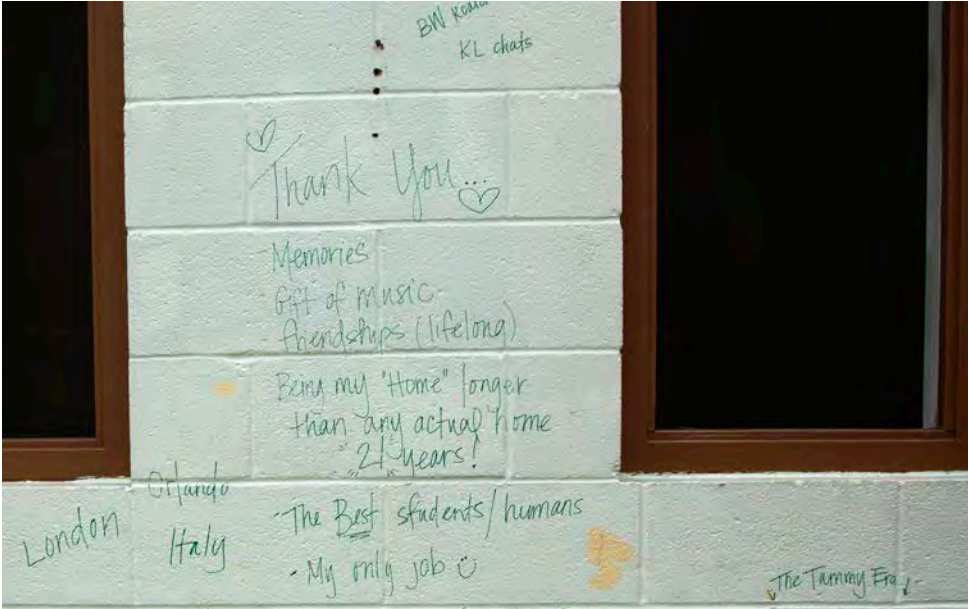 BW
KL chats
Thank You...
- Memories
- Gift of music
- friendships (lifelong)
Being my "Home" longer
than any actual home
"21 years!
Orlando
London
Italy
- The Best students/humans
- My only job
The Tammy Era